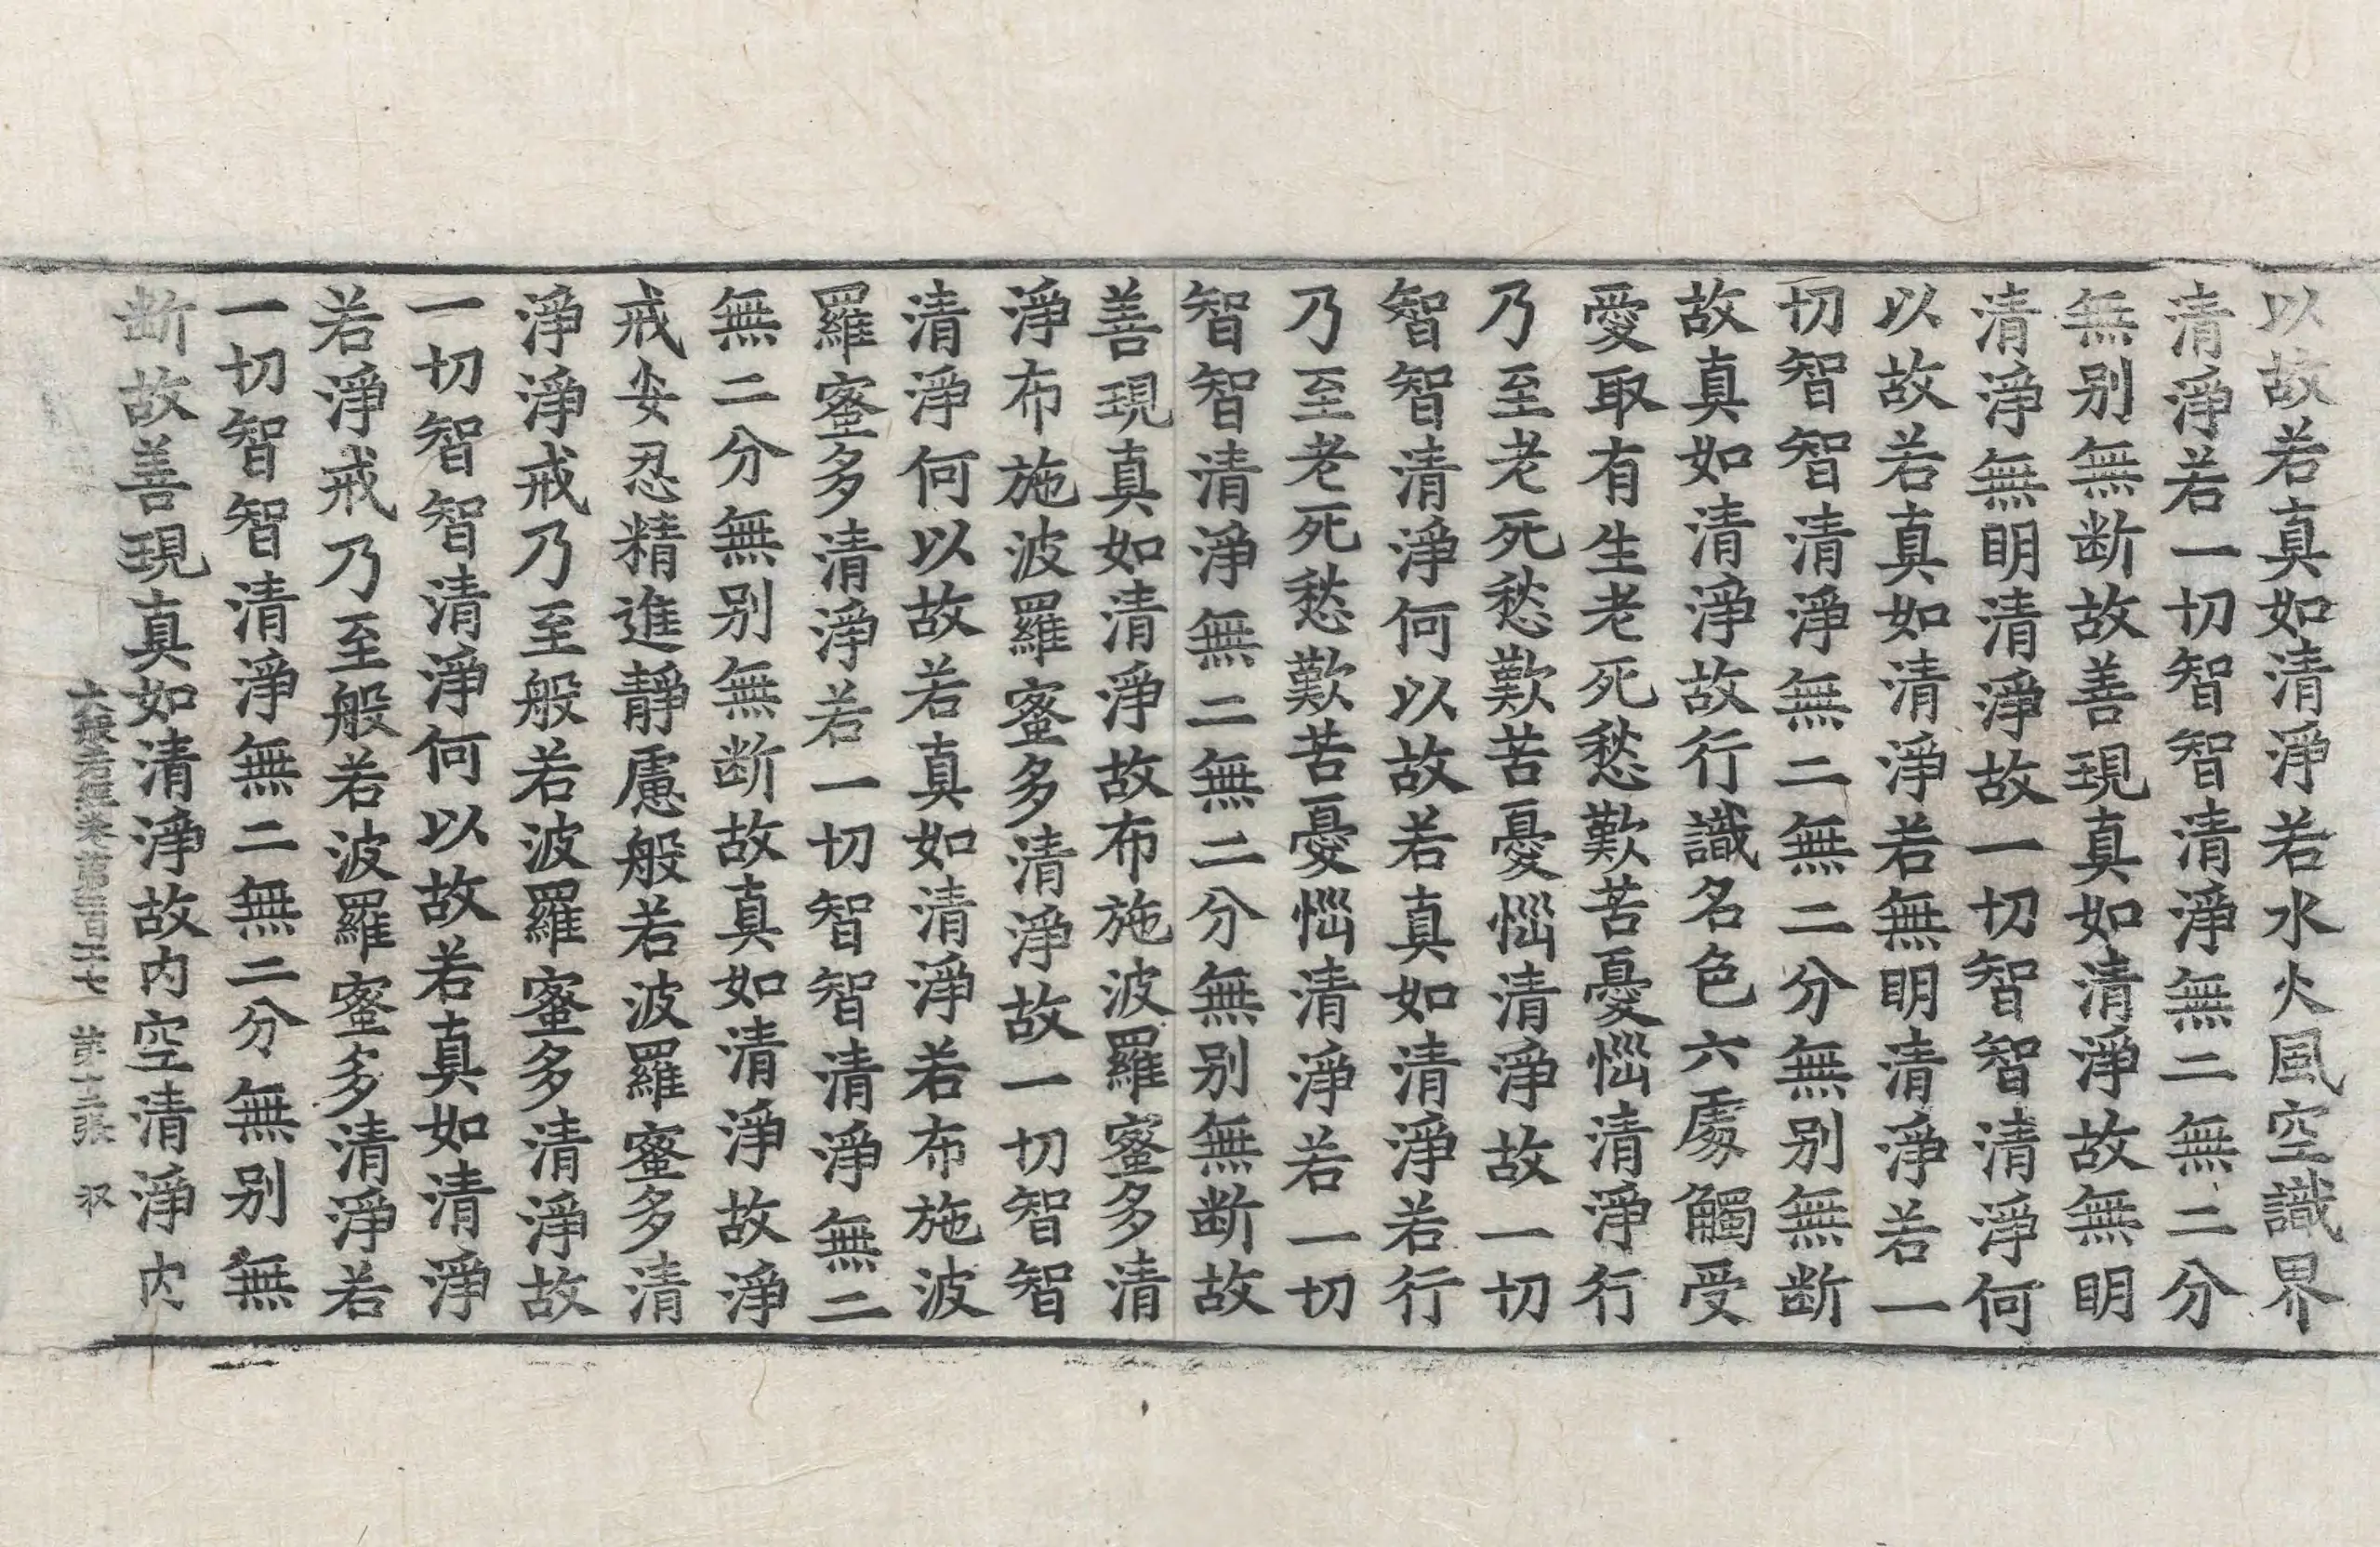 以故若真如清淨若水火風空識界
清淨若一切智智清淨無二無二分
無别無断故善現真如清淨故無明
清淨無明清淨故一切智智清淨何
以故若真如清淨若無明清淨若一
切智智清淨無二無二分無别無断
故真如清淨故行識名色六處觸受
愛取有生老死愁歎苦憂惱清淨行
乃至老死愁歎苦憂惱清淨故一切
智智清淨何以故若真如清淨若行
乃至老死愁歎苦憂惱清淨若一切
智智清淨無二無二分無别無断故
善現真如清淨故布施波羅蜜多清
淨布施波羅蜜多清淨故一切智智
清淨何以故若真如清淨若布施波
羅蜜多清淨若一切智智清淨無二
無二分無别無断故真如清淨故淨
戒安忍精進靜慮般若波羅蜜多清
淨淨戒乃至般若波羅蜜多清淨故
一切智智清淨何以故若真如清淨
若淨戒乃至般若波羅蜜多清淨若
一切智智清淨無二無二分無别無
断故善現真如清淨故内空清淨内
大般若經卷第二百二十七 第十二張